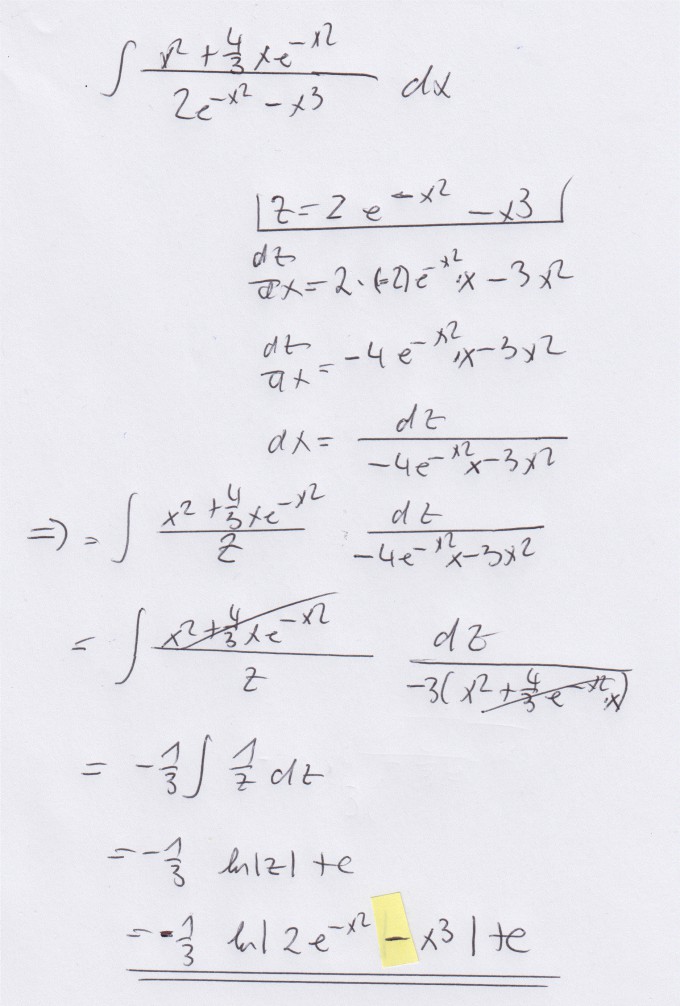 ∫ (x² + 4/3 xe^(-x²)) / (2e^(-x²) - x³) dx
z = 2 e^(-x²) - x³
dz/dx = 2·(-2)e^(-x²)·x - 3x²
dz/dx = -4e^(-x²)·x - 3x²
dx = dz / (-4e^(-x²)x - 3x²)
=> = ∫ (x² + 4/3 xe^(-x²)) / z dz / (-4e^(-x²)x - 3x²)
= ∫ (x² + 4/3 xe^(-x²)) / z dz / (-3(x² + 4/3 e^(-x²)·x))
= -1/3 ∫ 1/z dz
= -1/3 ln|z| + c
= -1/3 ln| 2e^(-x²) - x³ | + c